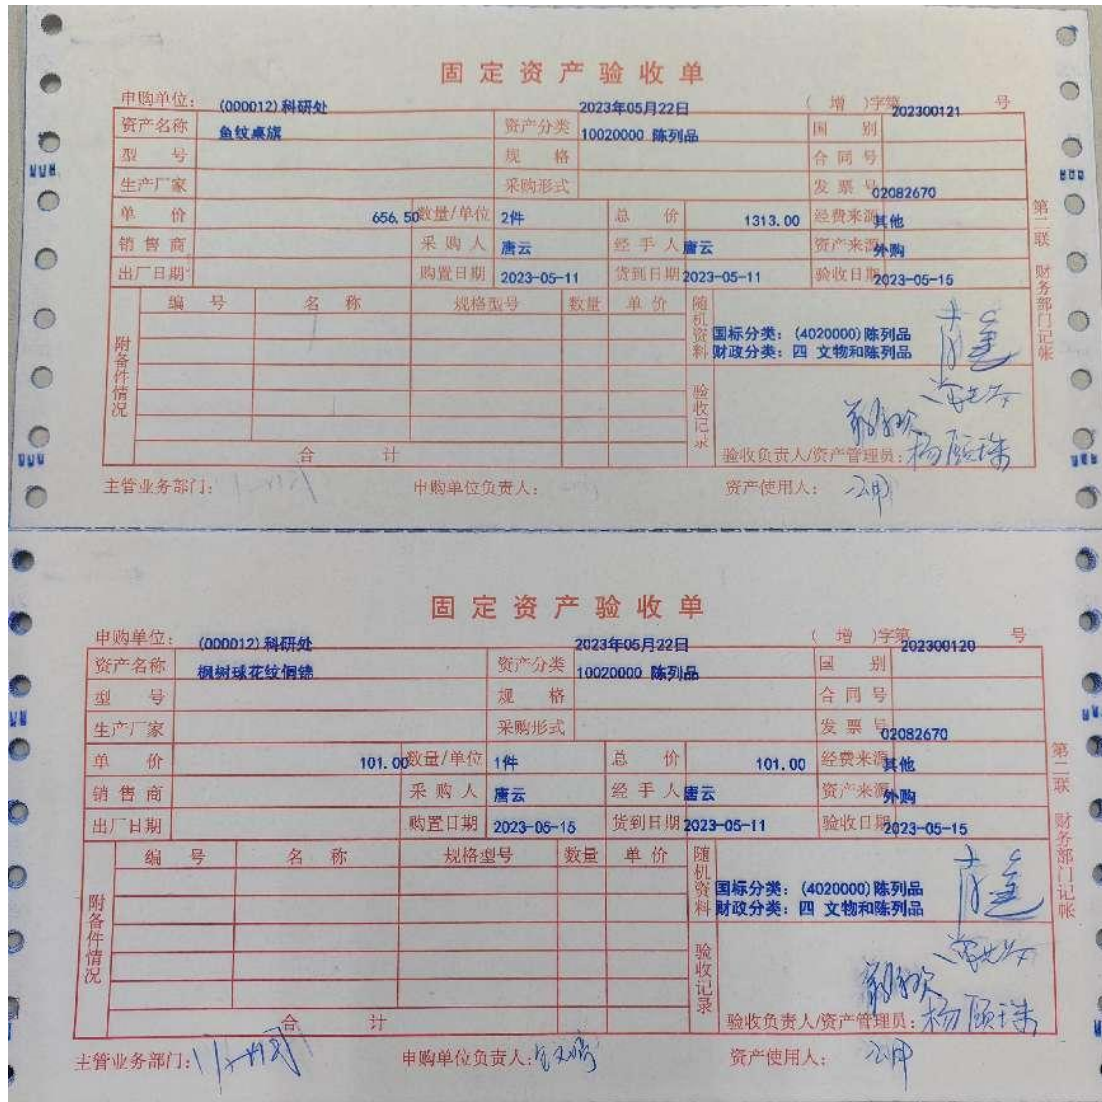 固定资产验收单
申购单位: (000012)科研处 2023年05月22日 ( 增 )字第 202300121 号
资产名称 鱼纹桌旗 资产分类 10020000 陈列品 国别
型号 规格 合同号
生产厂家 采购形式 发票号 02082670
单价 656.50 数量/单位 2件 总价 1313.00 经费来源 其他
销售商 采购人 唐云 经手人 唐云 资产来源 外购
出厂日期 购置日期 2023-05-11 货到日期 2023-05-11 验收日期 2023-05-15
附备件情况 编号 名称 规格型号 数量 单价
随机资料 国标分类: (4020000)陈列品
财政分类: 四 文物和陈列品
验收记录
合计 验收负责人/资产管理员:
主管业务部门: 申购单位负责人: 资产使用人:
第二联 财务部门记帐
固定资产验收单
申购单位: (000012)科研处 2023年05月22日 ( 增 )字第 202300120 号
资产名称 枫树球花纹侗锦 资产分类 10020000 陈列品 国别
型号 规格 合同号
生产厂家 采购形式 发票号 02082670
单价 101.00 数量/单位 1件 总价 101.00 经费来源 其他
销售商 采购人 唐云 经手人 唐云 资产来源 外购
出厂日期 购置日期 2023-05-15 货到日期 2023-05-11 验收日期 2023-05-15
附备件情况 编号 名称 规格型号 数量 单价
随机资料 国标分类: (4020000)陈列品
财政分类: 四 文物和陈列品
验收记录
合计 验收负责人/资产管理员:
主管业务部门: 申购单位负责人: 资产使用人:
第二联 财务部门记帐